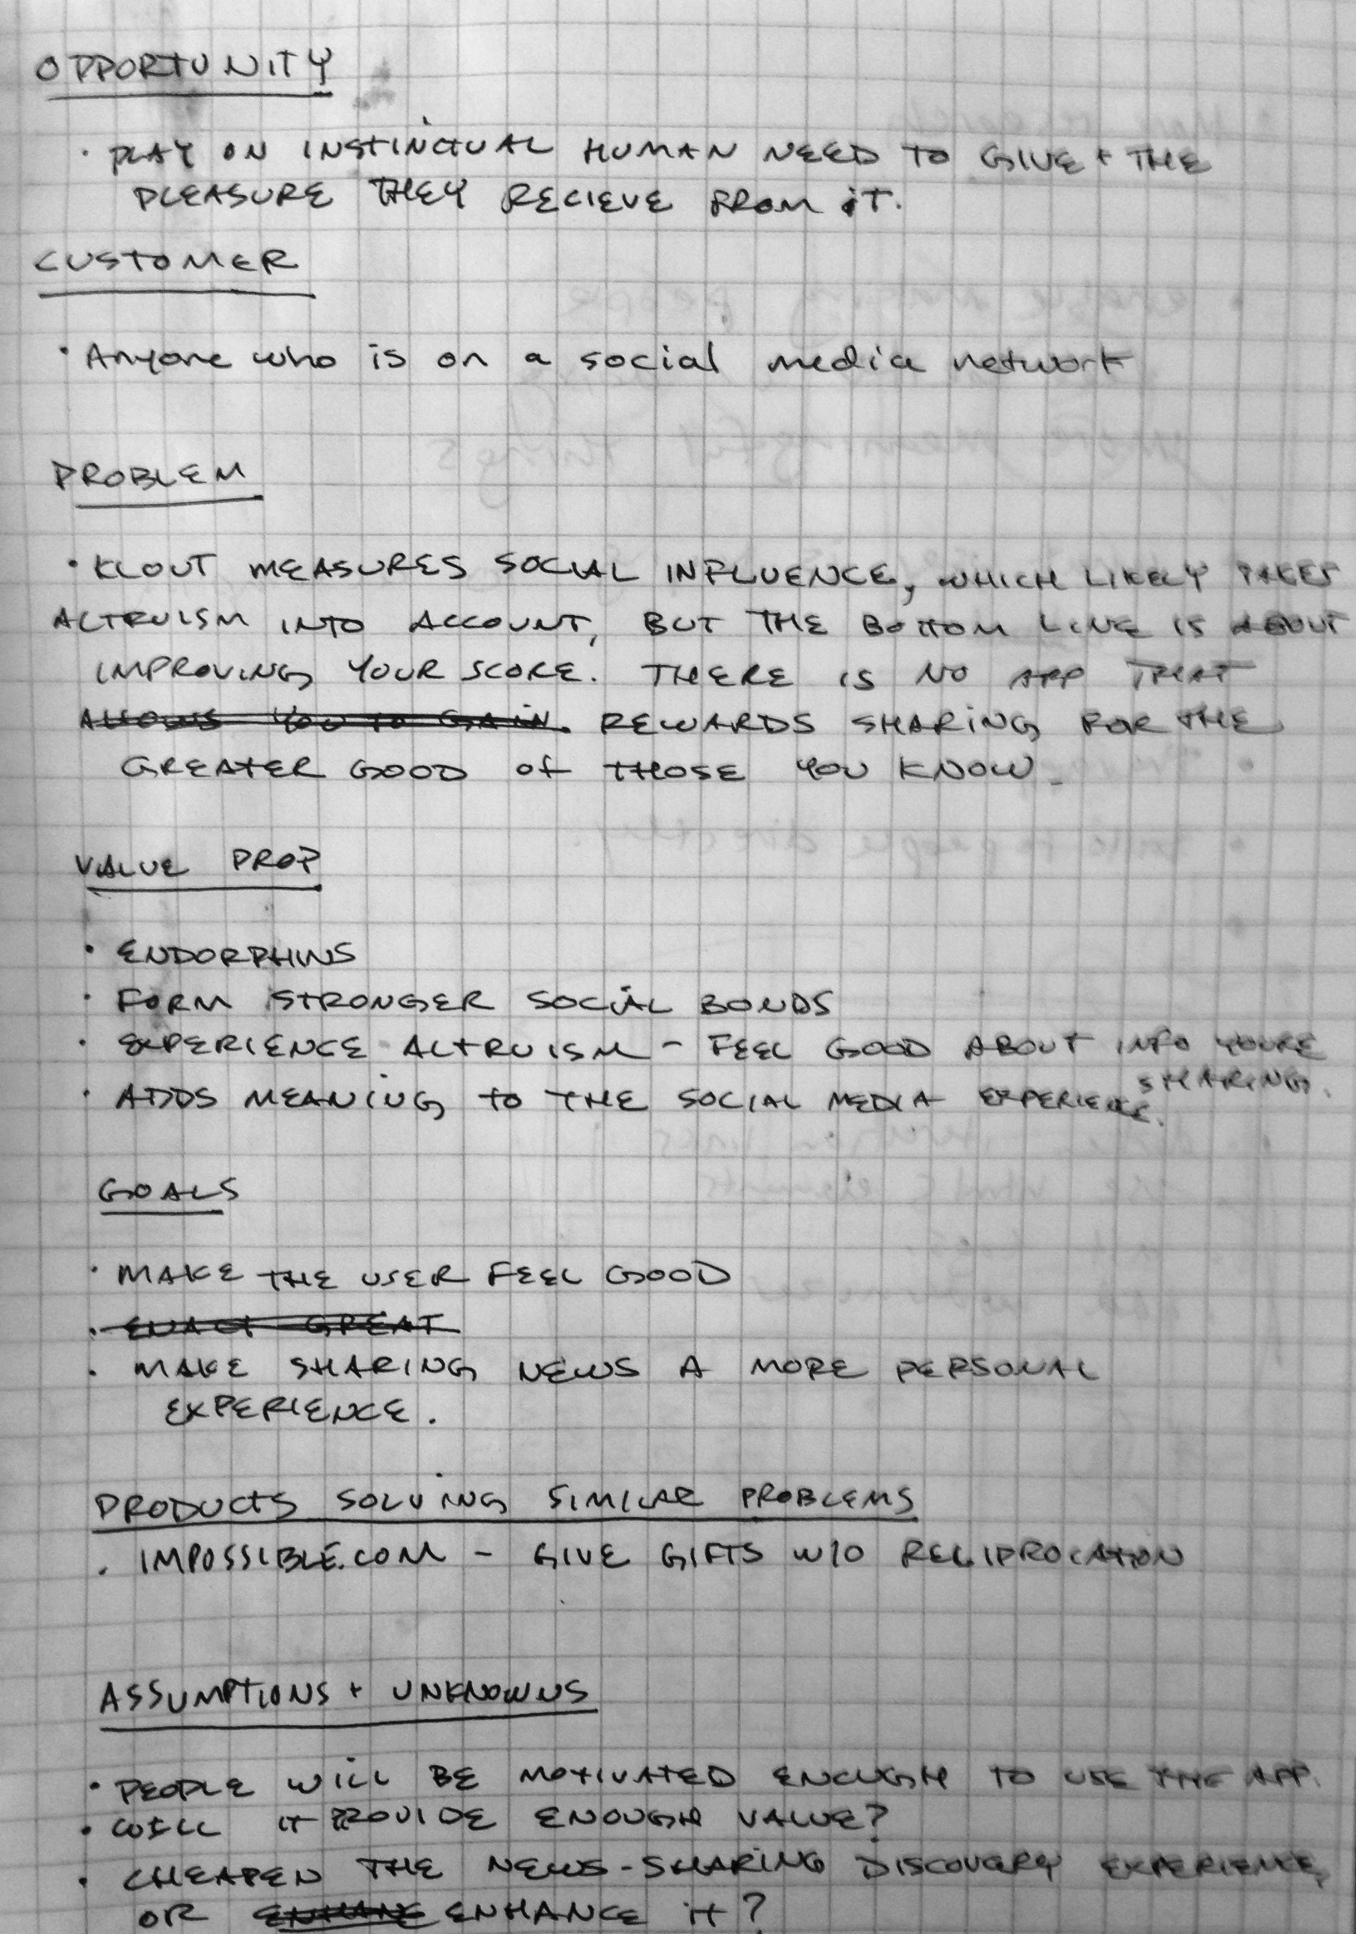 OPPORTUNITY
· PLAY ON INSTINCTUAL HUMAN NEED TO GIVE + THE
PLEASURE THEY RECIEVE FROM IT.
CUSTOMER
· Anyone who is on a social media network
PROBLEM
· KLOUT MEASURES SOCIAL INFLUENCE, WHICH LIKELY TAKES
ALTRUISM INTO ACCOUNT, BUT THE BOTTOM LINE IS ABOUT
IMPROVING YOUR SCORE. THERE IS NO APP THAT
ALLOWS YOU TO GAIN REWARDS SHARING FOR THE
GREATER GOOD OF THOSE YOU KNOW.
VALUE PROP
· ENDORPHINS
· FORM STRONGER SOCIAL BONDS
· EXPERIENCE ALTRUISM - FEEL GOOD ABOUT INFO YOURE
SHARING.
· ADDS MEANING TO THE SOCIAL MEDIA EXPERIENCE.
GOALS
· MAKE THE USER FEEL GOOD
· ENACT GREAT
· MAKE SHARING NEWS A MORE PERSONAL
EXPERIENCE.
PRODUCTS SOLVING SIMILAR PROBLEMS
· IMPOSSIBLE.COM - GIVE GIFTS W/O RECIPROCATION
ASSUMPTIONS + UNKNOWNS
· PEOPLE WILL BE MOTIVATED ENOUGH TO USE THE APP.
· WILL IT PROVIDE ENOUGH VALUE?
· CHEAPEN THE NEWS-SHARING DISCOVERY EXPERIENCE,
OR ENHANCE IT?